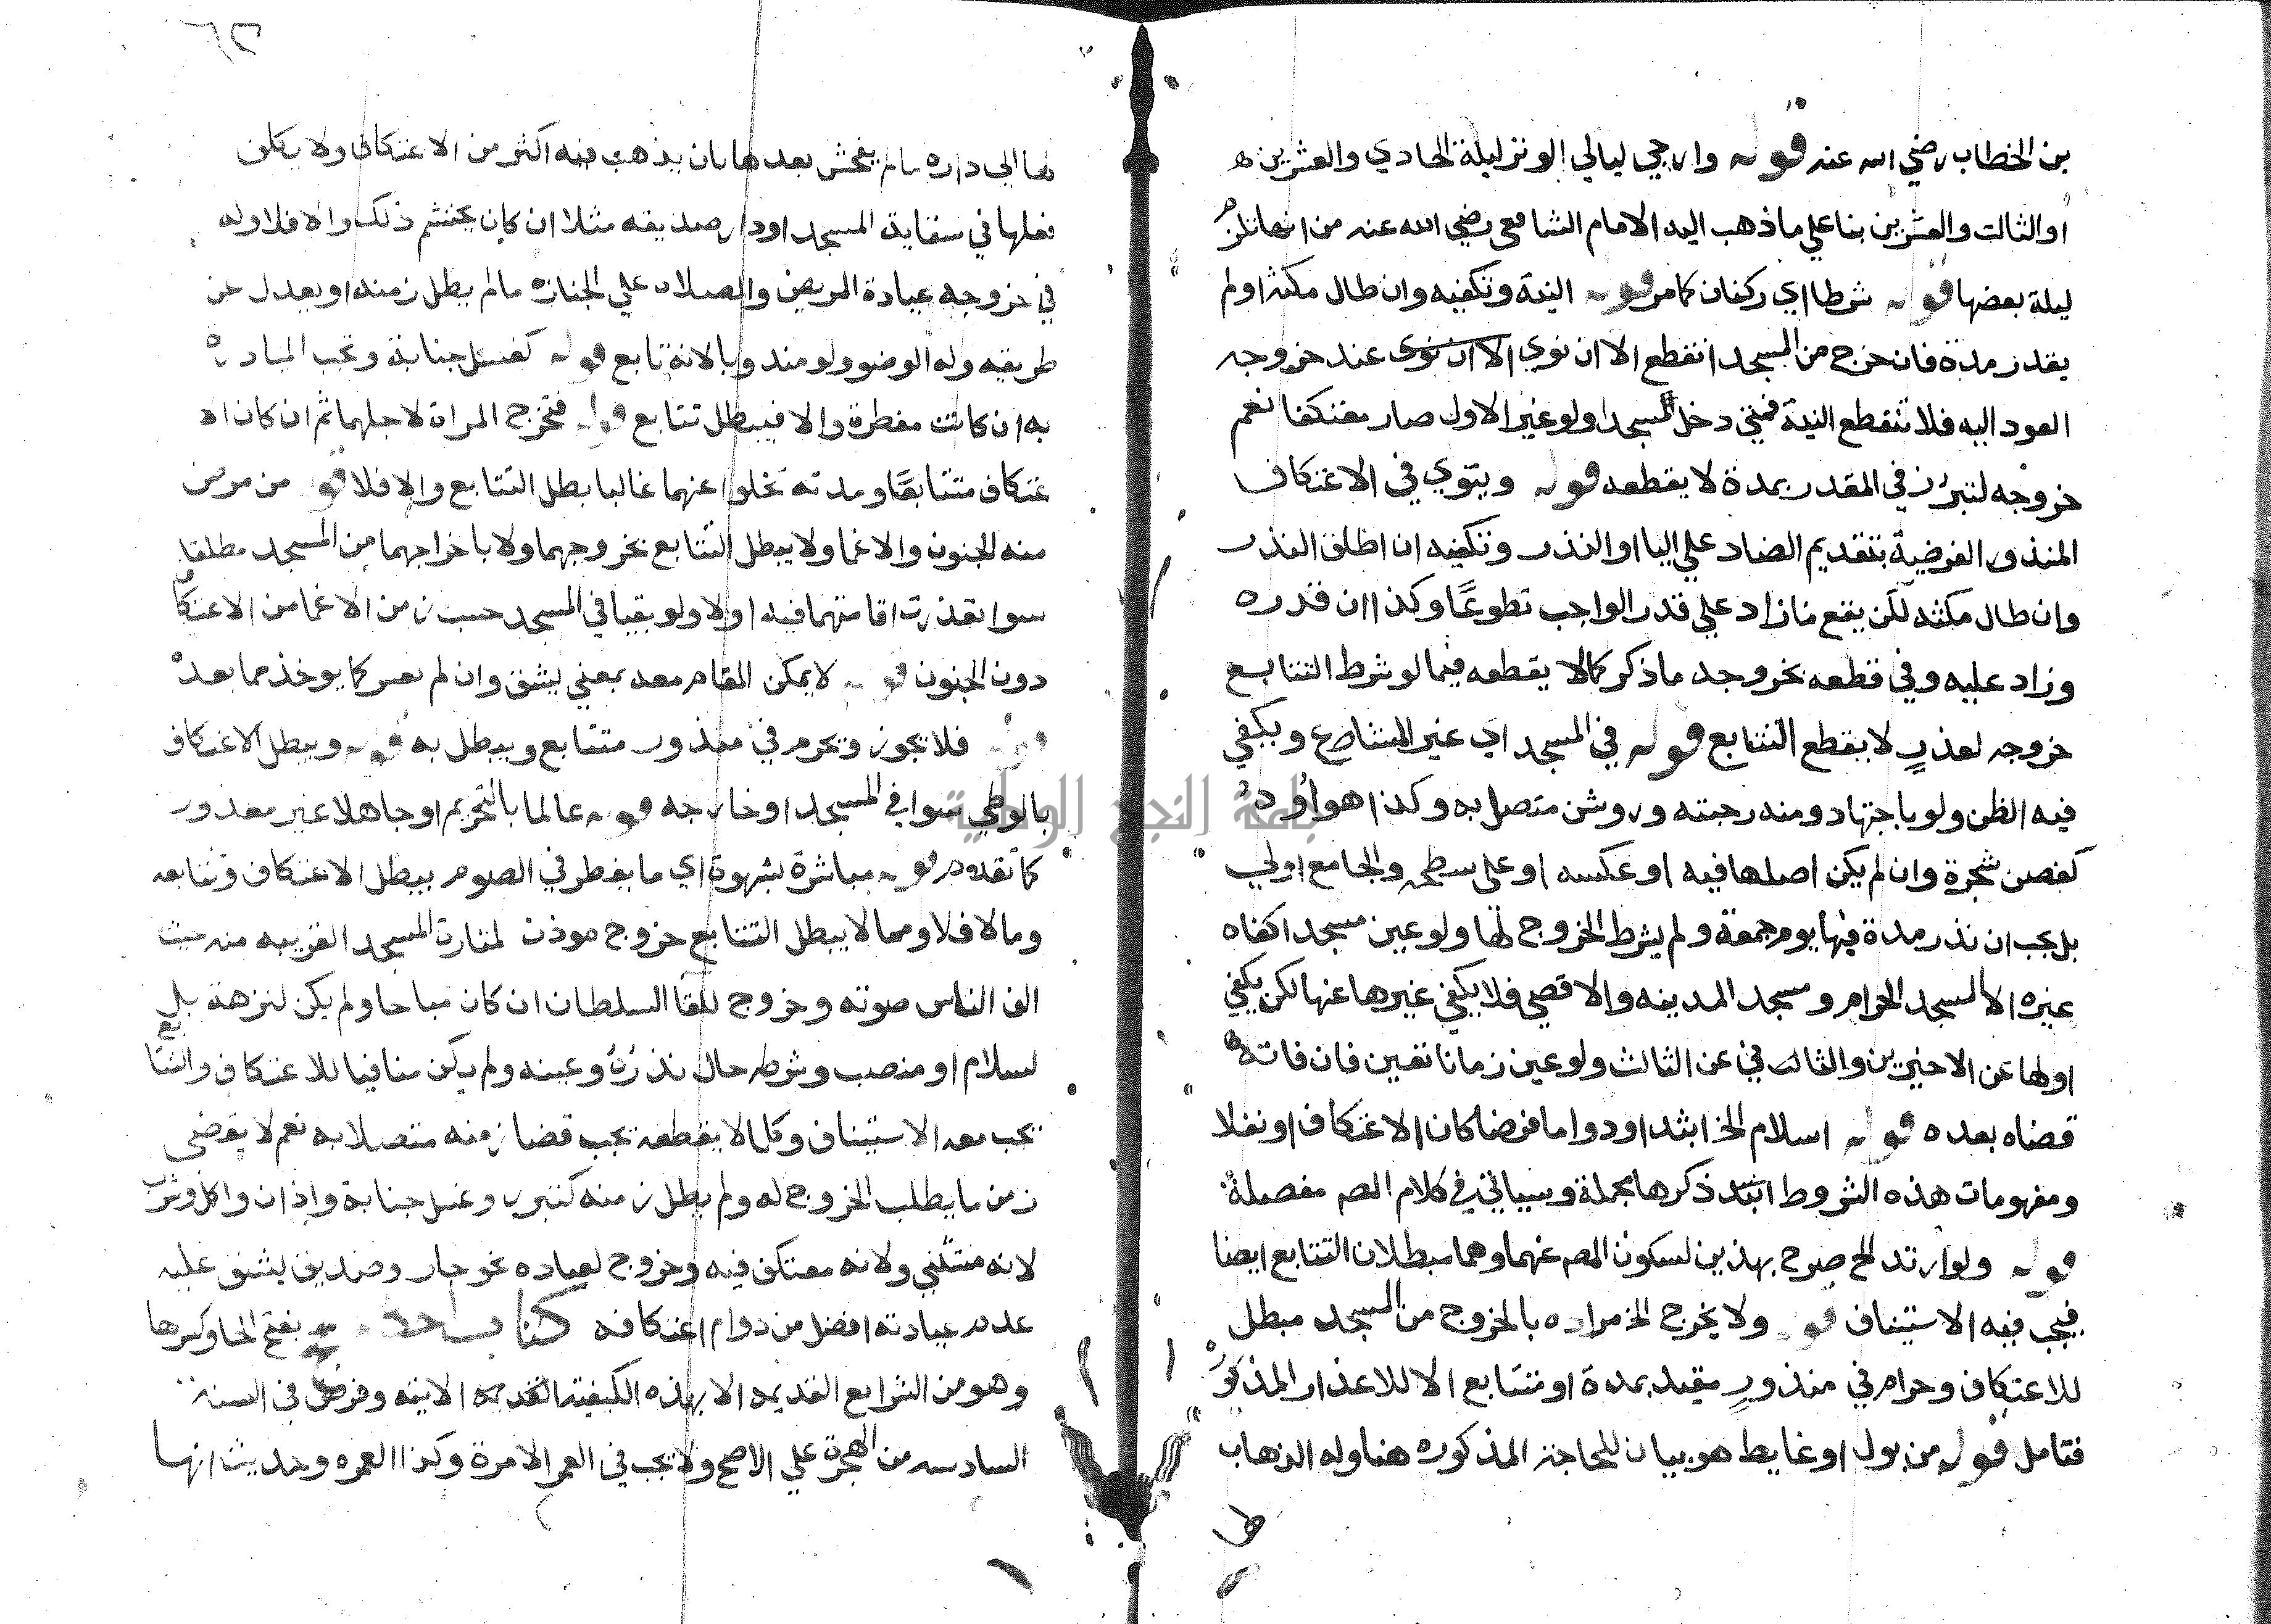 بن الخطاب رضي الله عنه قوله وارجي ليالي الوتر ليلة الحادي والعشرين
او الثالث والعشرين بنا علي ما ذهب اليه الامام الشافعي رضي الله عنه من انها تلزم
ليلة بعضها قوله شرطا اي ركنان كما مر قوله النية وتكفيه وان طال مكثه او لم
يقدر مدة فان خرج من المسجد انقطع الا ان نوي الا ان نوي عند خروجه
العود اليه فلا تنقطع النية فمتي دخل المسجد ولو غير الاول صار معتكفا نعم
خروجه لتبرز في المقدر بمدة لا يقطعه قوله وينوي في الاعتكاف
المنذور الفرضية بتقديم الضاد علي اليا او النذر وتكفيه ان اطلق النذر
وان طال مكثه لكن يقع ما زاد علي قدر الواجب تطوعًا وكذا ان قدره
وزاد عليه وفي قطعه بخروجه ما ذكر كما لا يقطعه فيما لو شرط التتابع
خروجه لعذرٍ لا يقطع التتابع قوله في المسجد اي غير المشاع ويكفي
فيه الظن ولو باجتهاد ومنه رحبته وروشن متصل به وكذا هواؤه
كغصن شجرة وان لم يكن اصلها فيه او عكسه او علي سطحه والجامع اولي
بل يجب ان نذر مدة فيها يوم جمعة ولم يشرط الخروج لها ولو عين مسجدا كفاه
غيره الا المسجد الحرام ومسجد المدينه والاقصي فلا يكفي غيرها عنها لكن يكفي
اولها عن الاخيرين والثاني عن الثالث ولو عين زمانا تعين فان فاته
قضاه بعده قوله اسلام الخ ابتدا ودواما فرضا كان الاعتكاف او نفلا
ومفهومات هذه الشروط ذكرها مجملة وسياتي في كلام المص مفصلة
قوله ولو ارتد الخ صرح بهذين لسكوت المص عنهما وهما مبطلان التتابع ايضا
فيجب فيه الاستيناف قوله ولا يخرج الخ مراده بالخروج من المسجد مبطل
للاعتكاف وحرام في منذورٍ مقيد بمدة او متتابع الا للاعذار المذكورة
فتامل قوله من بول او غايط هو بيان للحاجة المذكوره هنا وله الذهاب
لها
لها الي داره ما لم يفحش بعدها بان يذهب فيه اكثر من الاعتكاف ولا يكلف
فعلها في سقاية المسجد او دار صديقه مثلا ان كان يحتشم ذلك والا فلا وله
في خروجه عيادة المريض والصلاه علي الجنازه ما لم يطل زمنه او يعدل عن
طريقه وله الوضو ولو مندوبا لانه تابع قوله كغسل جنابة وتجب المبادرة
به ان كانت مفطرة والا فيبطل تتابع قوله فتخرج المراة لاجلهما ثم ان كان الا
عتكاف متتابعًا ومدته تخلوا عنهما غالبا بطل التتابع والا فلا قوله من مرض
منه الجنون والاغما ولا يبطل التتابع بخروجهما ولا باخراجهما من المسجد مطلقا
سوا تعذرت اقامتهما فيه او لا ولو بقيا في المسجد حسب زمن الاغما من الاعتكاف
دون الجنون قوله لا يمكن المقام معه بمعني يشق وان لم كما يوخذ مما بعده
قوله فلا يجوز ويحرم في منذور متتابع ويبطل به قوله ويبطل الاعتكاف
بالوطي سوا في المسجد او خارجه قوله عالما بالتحريم او جاهلا غير معذور
كما تقدم قوله مباشرة بشهوة اي ما يفطر في الصوم يبطل الاعتكاف وتتابعه
وما لا فلا ومما لا يبطل التتابع خروج موذن لمنارة المسجد القريبه منه حيث
الف الناس صوته وخروج للقا السلطان ان كان مباحا ولم يكن لنزهة بل
لسلام او منصب وشرطه حال نذره وعينه ولم يكن منافيا للاعتكاف والتتابع
يجب معه الاستيناف وكل ما لا يقطعه يجب قضا زمنه متصلا به نعم لا يقضي
زمن ما يطلب الخروج له ولم يطل زمنه كتبرز وغسل جنابة واذان واكل وشرب
لانه مستثني ولانه معتكف فيه وخروج لعياده نحو جار وصديق يشق عليه
عدم عيادته افضل من دوام اعتكافه كتاب الحج بفتح الحا وكسرها
وهو من الشرايع القديمه الا بهذه الكيفية الاتيه وفرض في السنة
السادسه من الهجرة علي الاصح ولا يجب في العمر الا مرة وكذا العمره وحديث انها
جامعة النجاح الوطنية